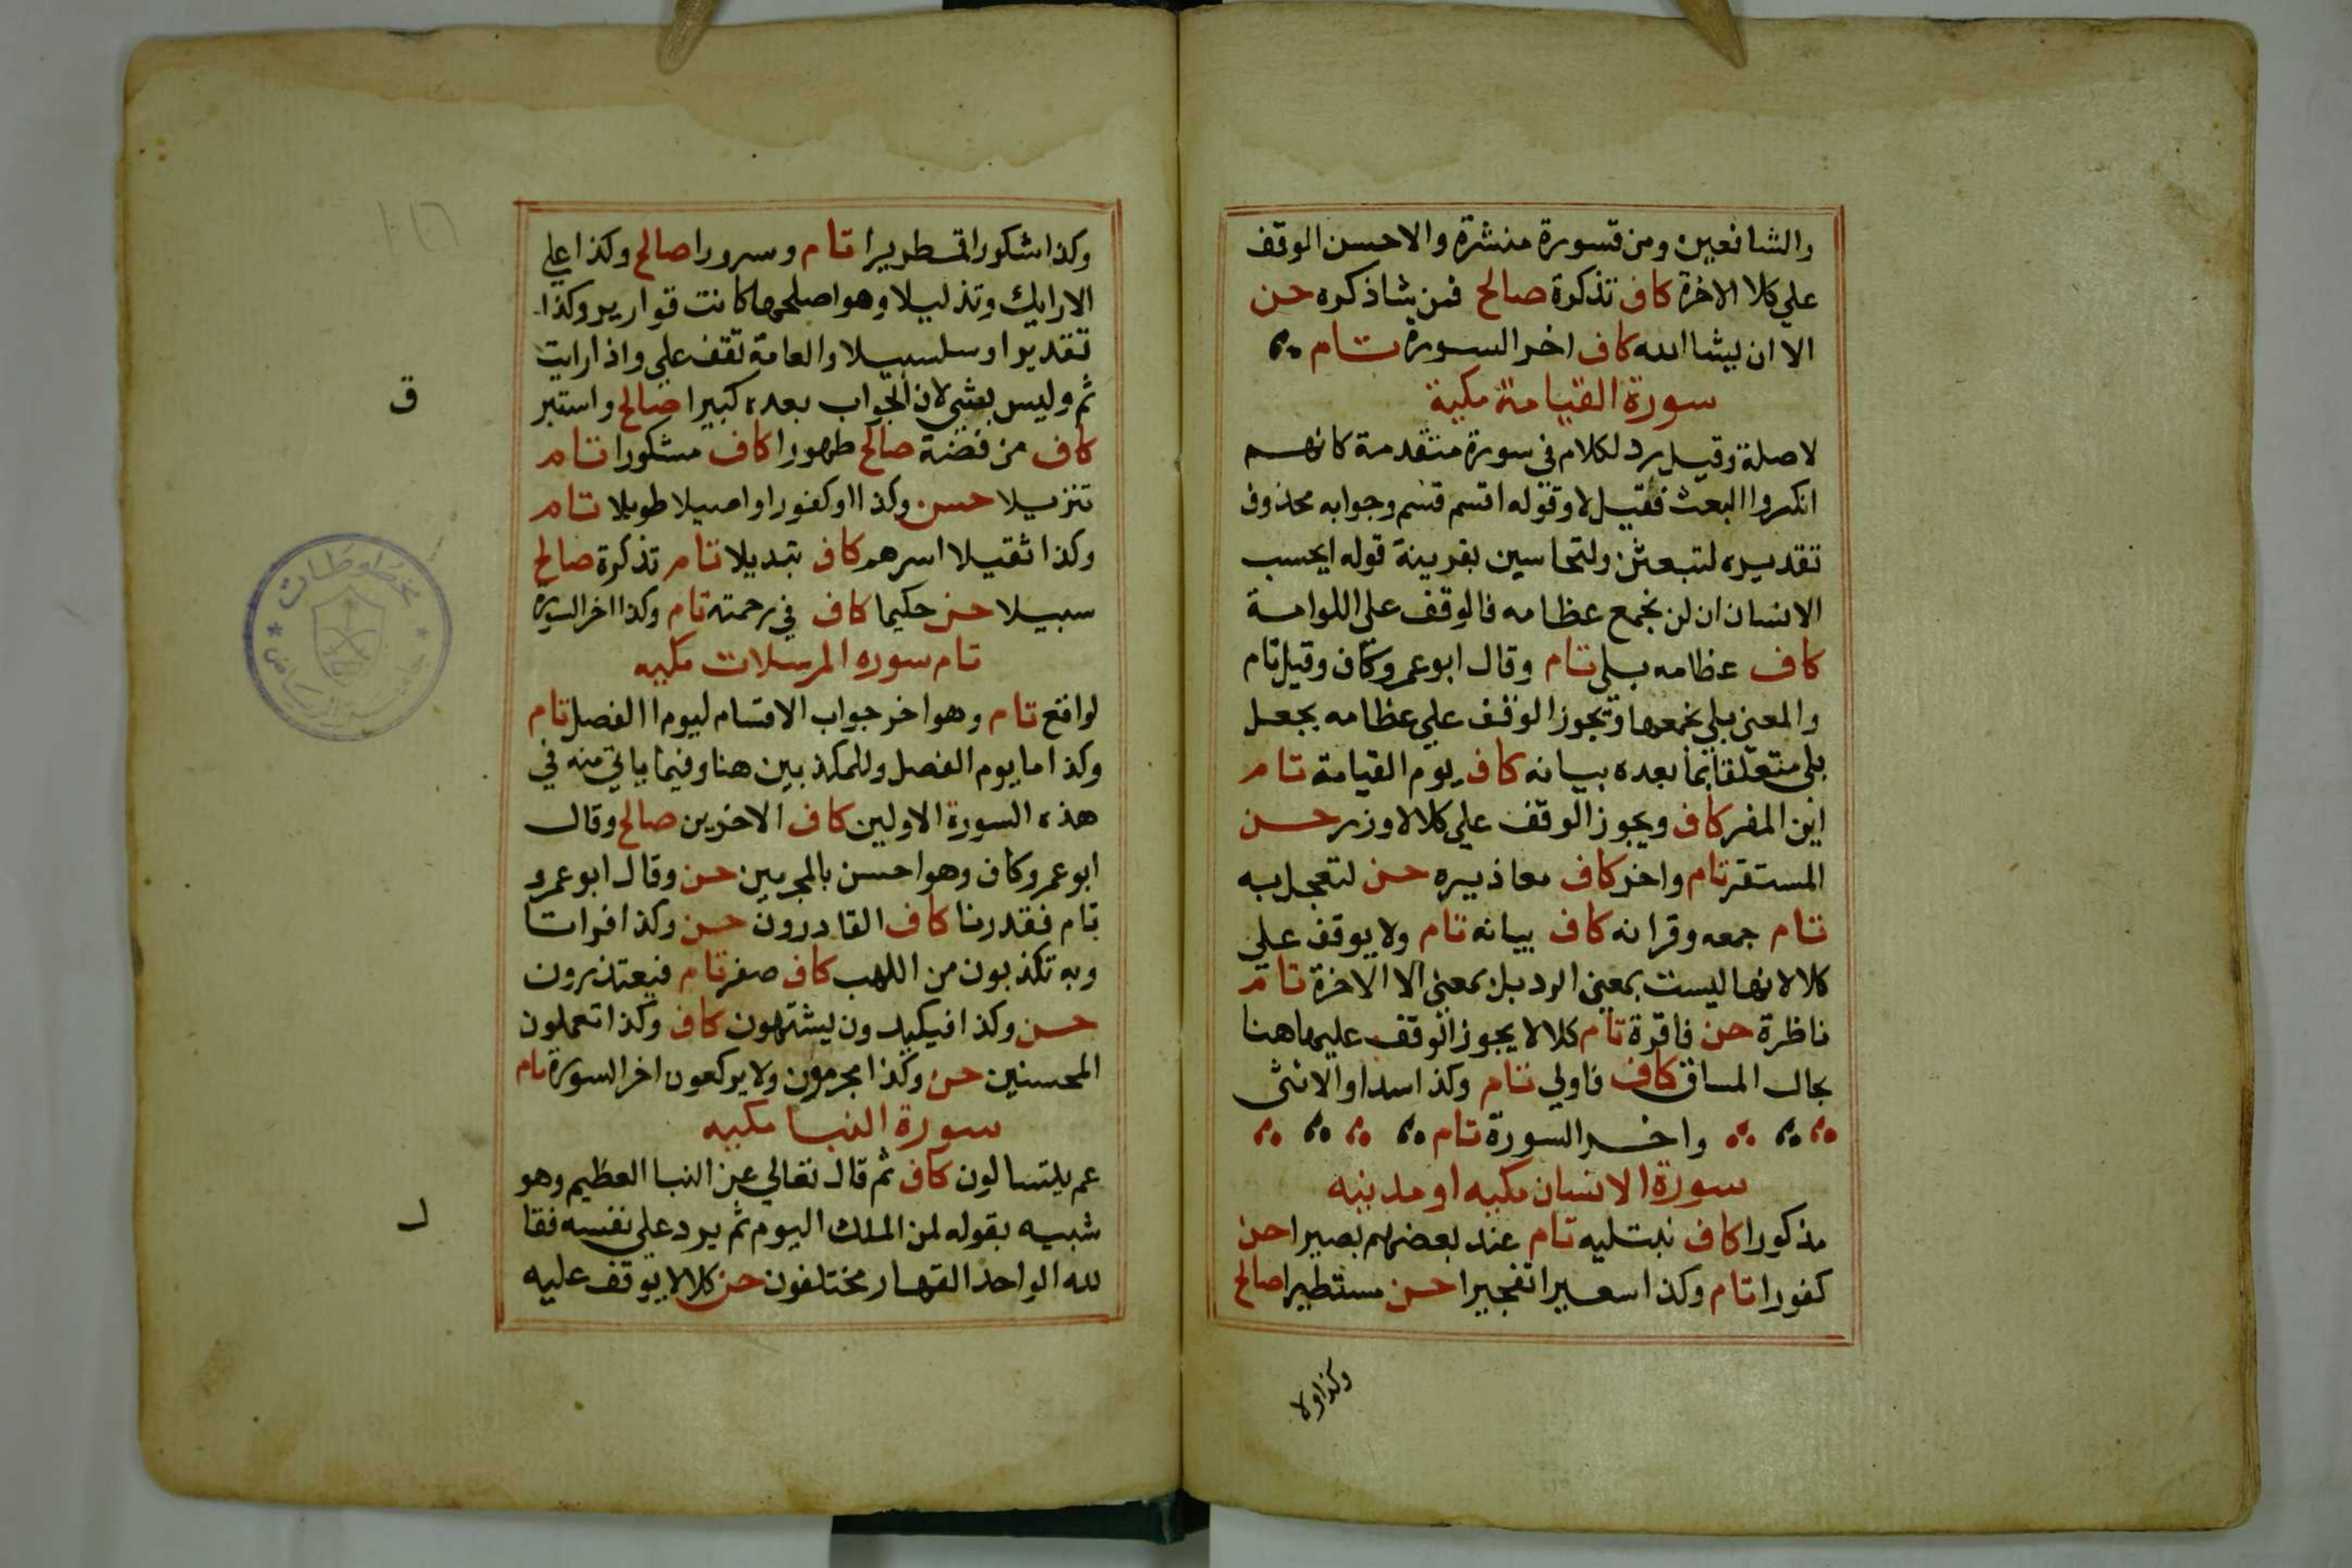 والشافعين ومن قسورة منشرة والاحسن الوقف
علي كلا الاخرة كاف تذكرة صالح فمن شا ذكره حسن
الا ان يشا الله كاف اخر السورة تام
سورة القيامة مكية
لا صلة وقيل رد لكلام في سورة متقدمة كانهم
انكروا البعث فقيل لا وقوله اقسم قسم وجوابه محذوف
تقديره لتبعثن ولتحاسبن بقرينة قوله ايحسب
الانسان ان لن نجمع عظامه فالوقف على اللوامة
كاف عظامه بلي تام وقال ابو عمرو كاف وقيل تام
والمعنى بلي نجمعها ويجوز الوقف علي عظامه بجعل
بلي متعلقا بما بعده بنانه كاف يوم القيامة تام
اين المفر كاف ويجوز الوقف علي كلا لا وزر حسن
المستقر تام واخر كاف معاذيره حسن لتعجل به
تام جمعه وقرانه كاف بيانه تام ولا يوقف علي
كلا لانها ليست بمعني الرد بل بمعني الا الاخرة تام
ناظرة حسن فاقرة تام كلا لا يجوز الوقف عليها هنا
بحال المساق كاف فاولي تام وكذا سدا والانثى
واخر السورة تام
سورة الانسان مكيه او مدنيه
مذكورا كاف نبتليه تام عند بعضهم بصيرا حسن
كفورا تام وكذا سعيرا تفجيرا حسن مستطيرا صالح
وكذا ولا
وكذا شكورا قمطريرا تام وسرورا صالح وكذا علي
الارايك وتذليلا وهو اصلحها كانت قوارير وكذا
تقديرا وسلسبيلا والعامة تقف علي واذا رايت
ثم وليس بشي لان الجواب بعده كبيرا صالح واستبر
ق
كاف من فضة صالح طهورا كاف مشكورا تام
تنزيلا حسن وكذا او كفورا واصيلا طويلا تام
وكذا ثقيلا اسرهم كاف تبديلا تام تذكرة صالح
سبيلا حسن حكيما كاف في رحمته تام وكذا اخر السورة
تام سوره المرسلات مكيه
لواقع تام وهو اخر جواب الاقسام ليوم الفصل تام
وكذا ما يوم الفصل وللمكذبين هنا وفيما ياتي منه في
هذه السورة الاولين كاف الاخرين صالح وقال
ابو عمرو كاف وهو احسن بالمجرمين حسن وقال ابو عمرو
تام فقدرنا كاف القادرون حسن وكذا فراتا
وبه تكذبون من اللهب كاف صفر تام فيعتذرون
حسن وكذا فيكيدون يشتهون كاف وكذا تعملون
المحسنين حسن وكذا مجرمون ولا يركعون اخر السورة تام
سورة النبا مكيه
عم يتسالون كاف ثم قال تعالي عن النبا العظيم وهو
شبيه بقوله لمن الملك اليوم ثم يرد علي نفسه فقا
ل
لله الواحد القهار مختلفون حسن كلا لا يوقف عليه
مخطوطات